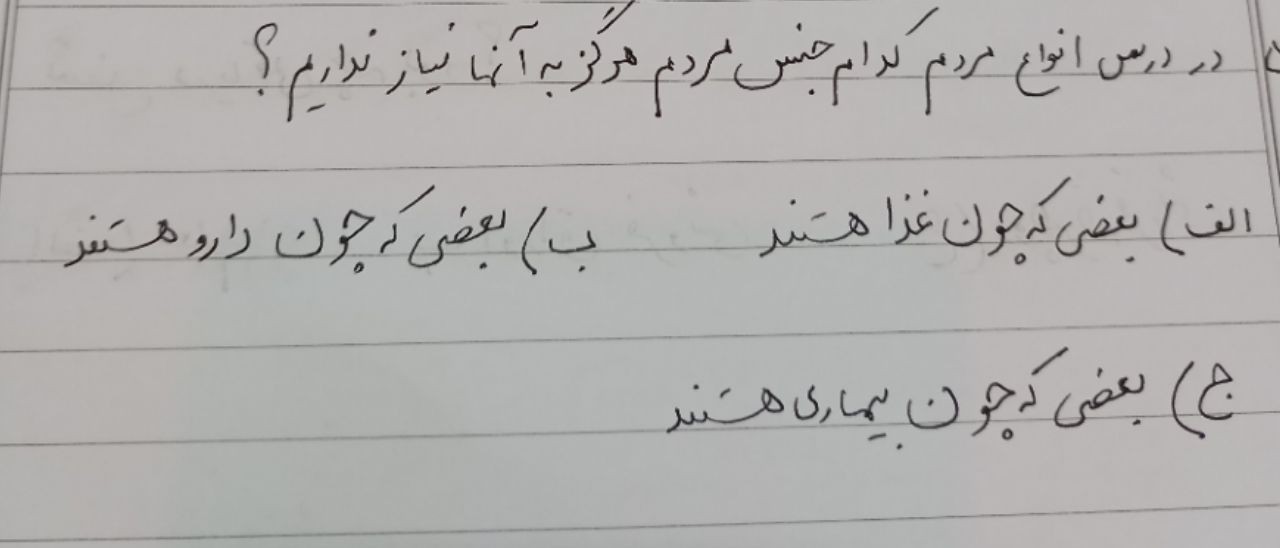 در درس انواع مردم کدام جنس مردم هرگز به آنها نیاز نداریم؟
الف) بعضی که چون غذا هستند ب) بعضی که چون دارو هستند
ج) بعضی که چون بیماری هستند